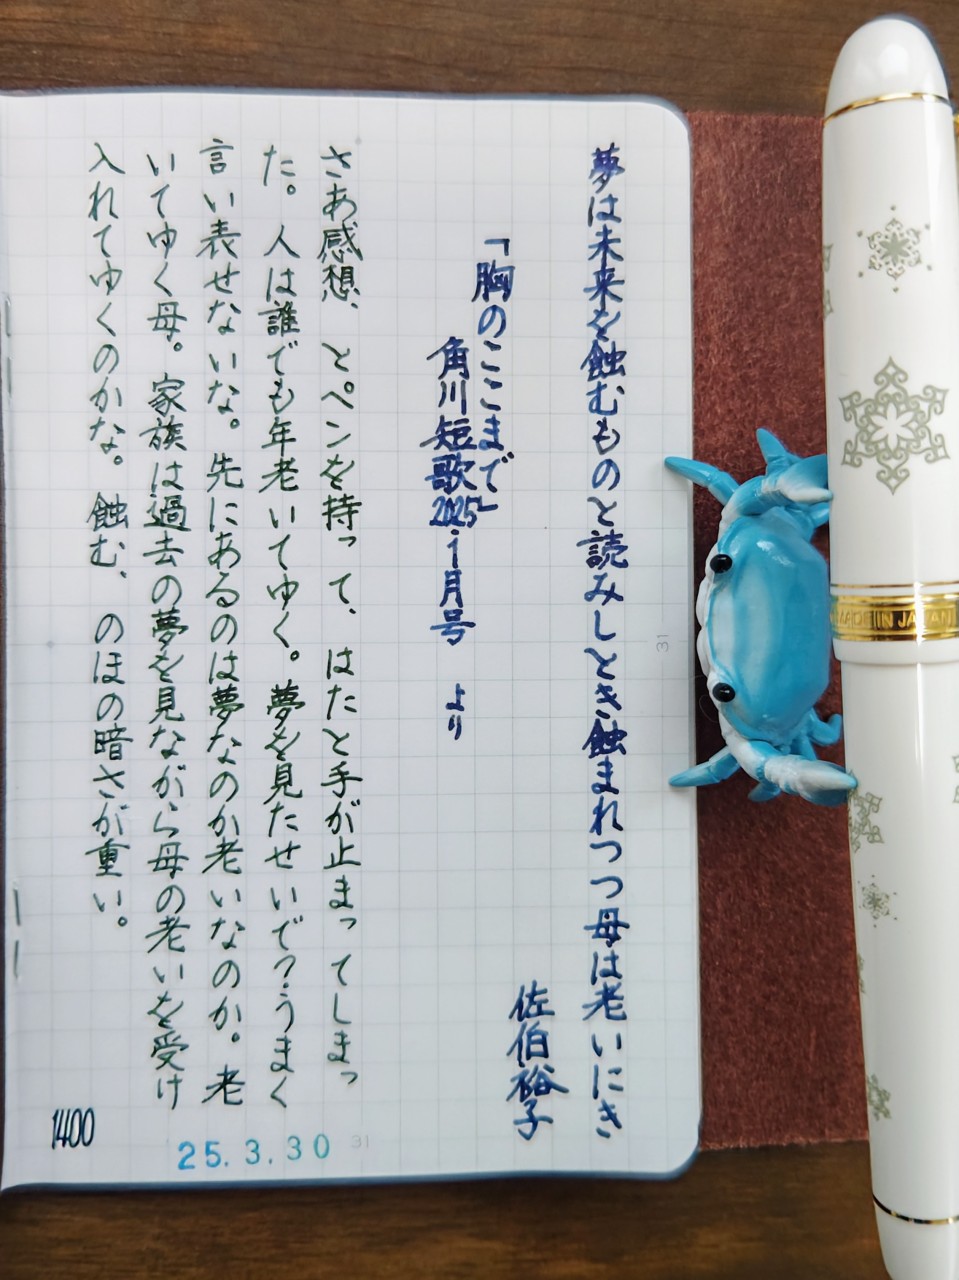 夢は未来を蝕むものと読みしとき蝕まれつつ母は老いにき
佐伯裕子
「胸のここまで」
角川短歌2025.1月号 より
さあ感想、とペンを持って、はたと手が止まってしまっ
た。人は誰でも年老いてゆく。夢を見たせいで？うまく
言い表せないな。先にあるのは夢なのか老いなのか。老
いてゆく母。家族は過去の夢を見ながら母の老いを受け
入れてゆくのかな。蝕む、のほの暗さが重い。
1400
25.3.30
31
31
MADE IN JAPAN